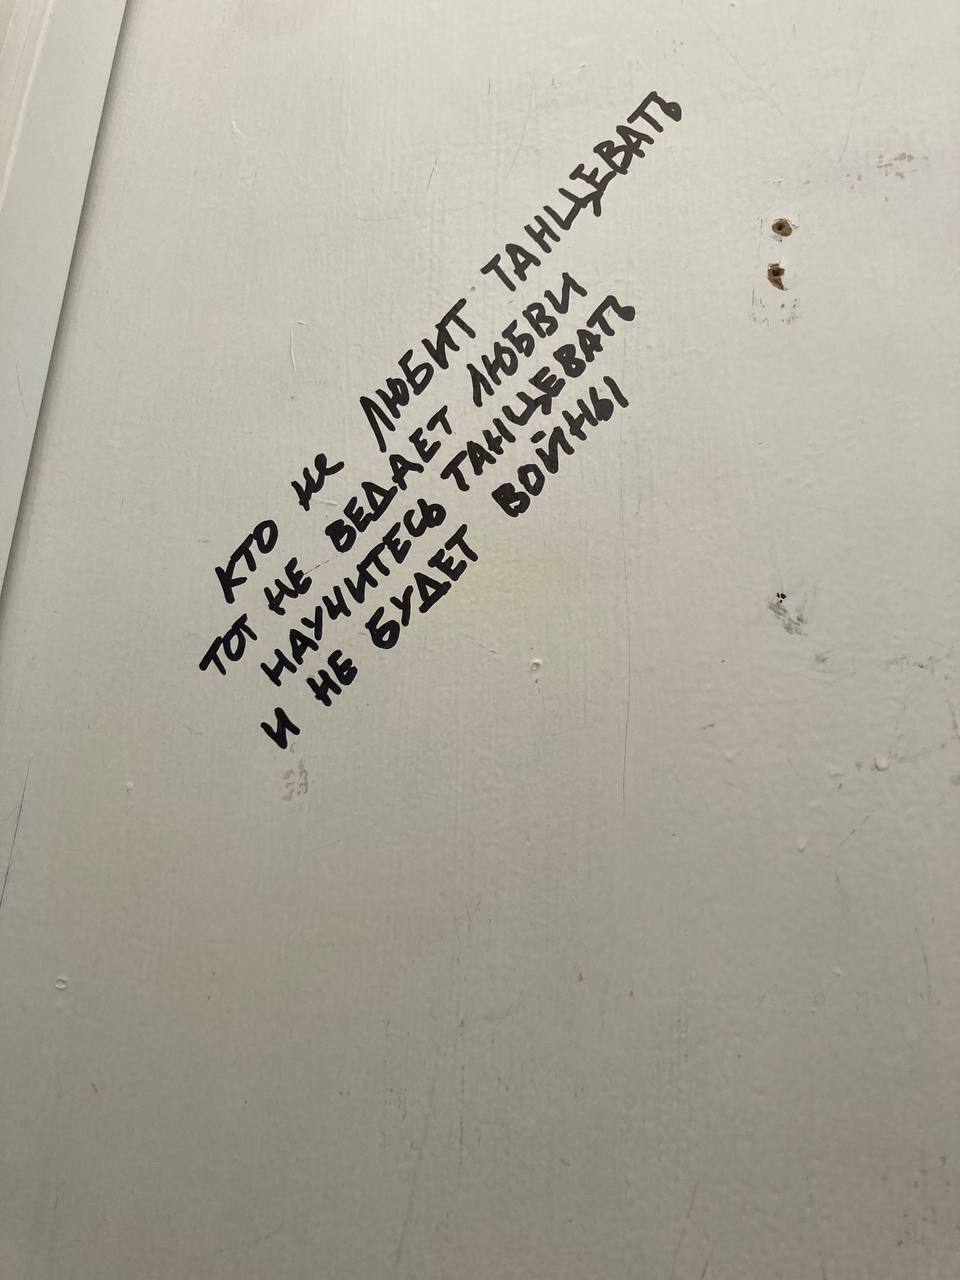 КТО НЕ ЛЮБИТ ТАНЦЕВАТЬ
ТОТ НЕ ВЕДАЕТ ЛЮБВИ
НАУЧИТЕСЬ ТАНЦЕВАТЬ
И НЕ БУДЕТ ВОЙНЫ